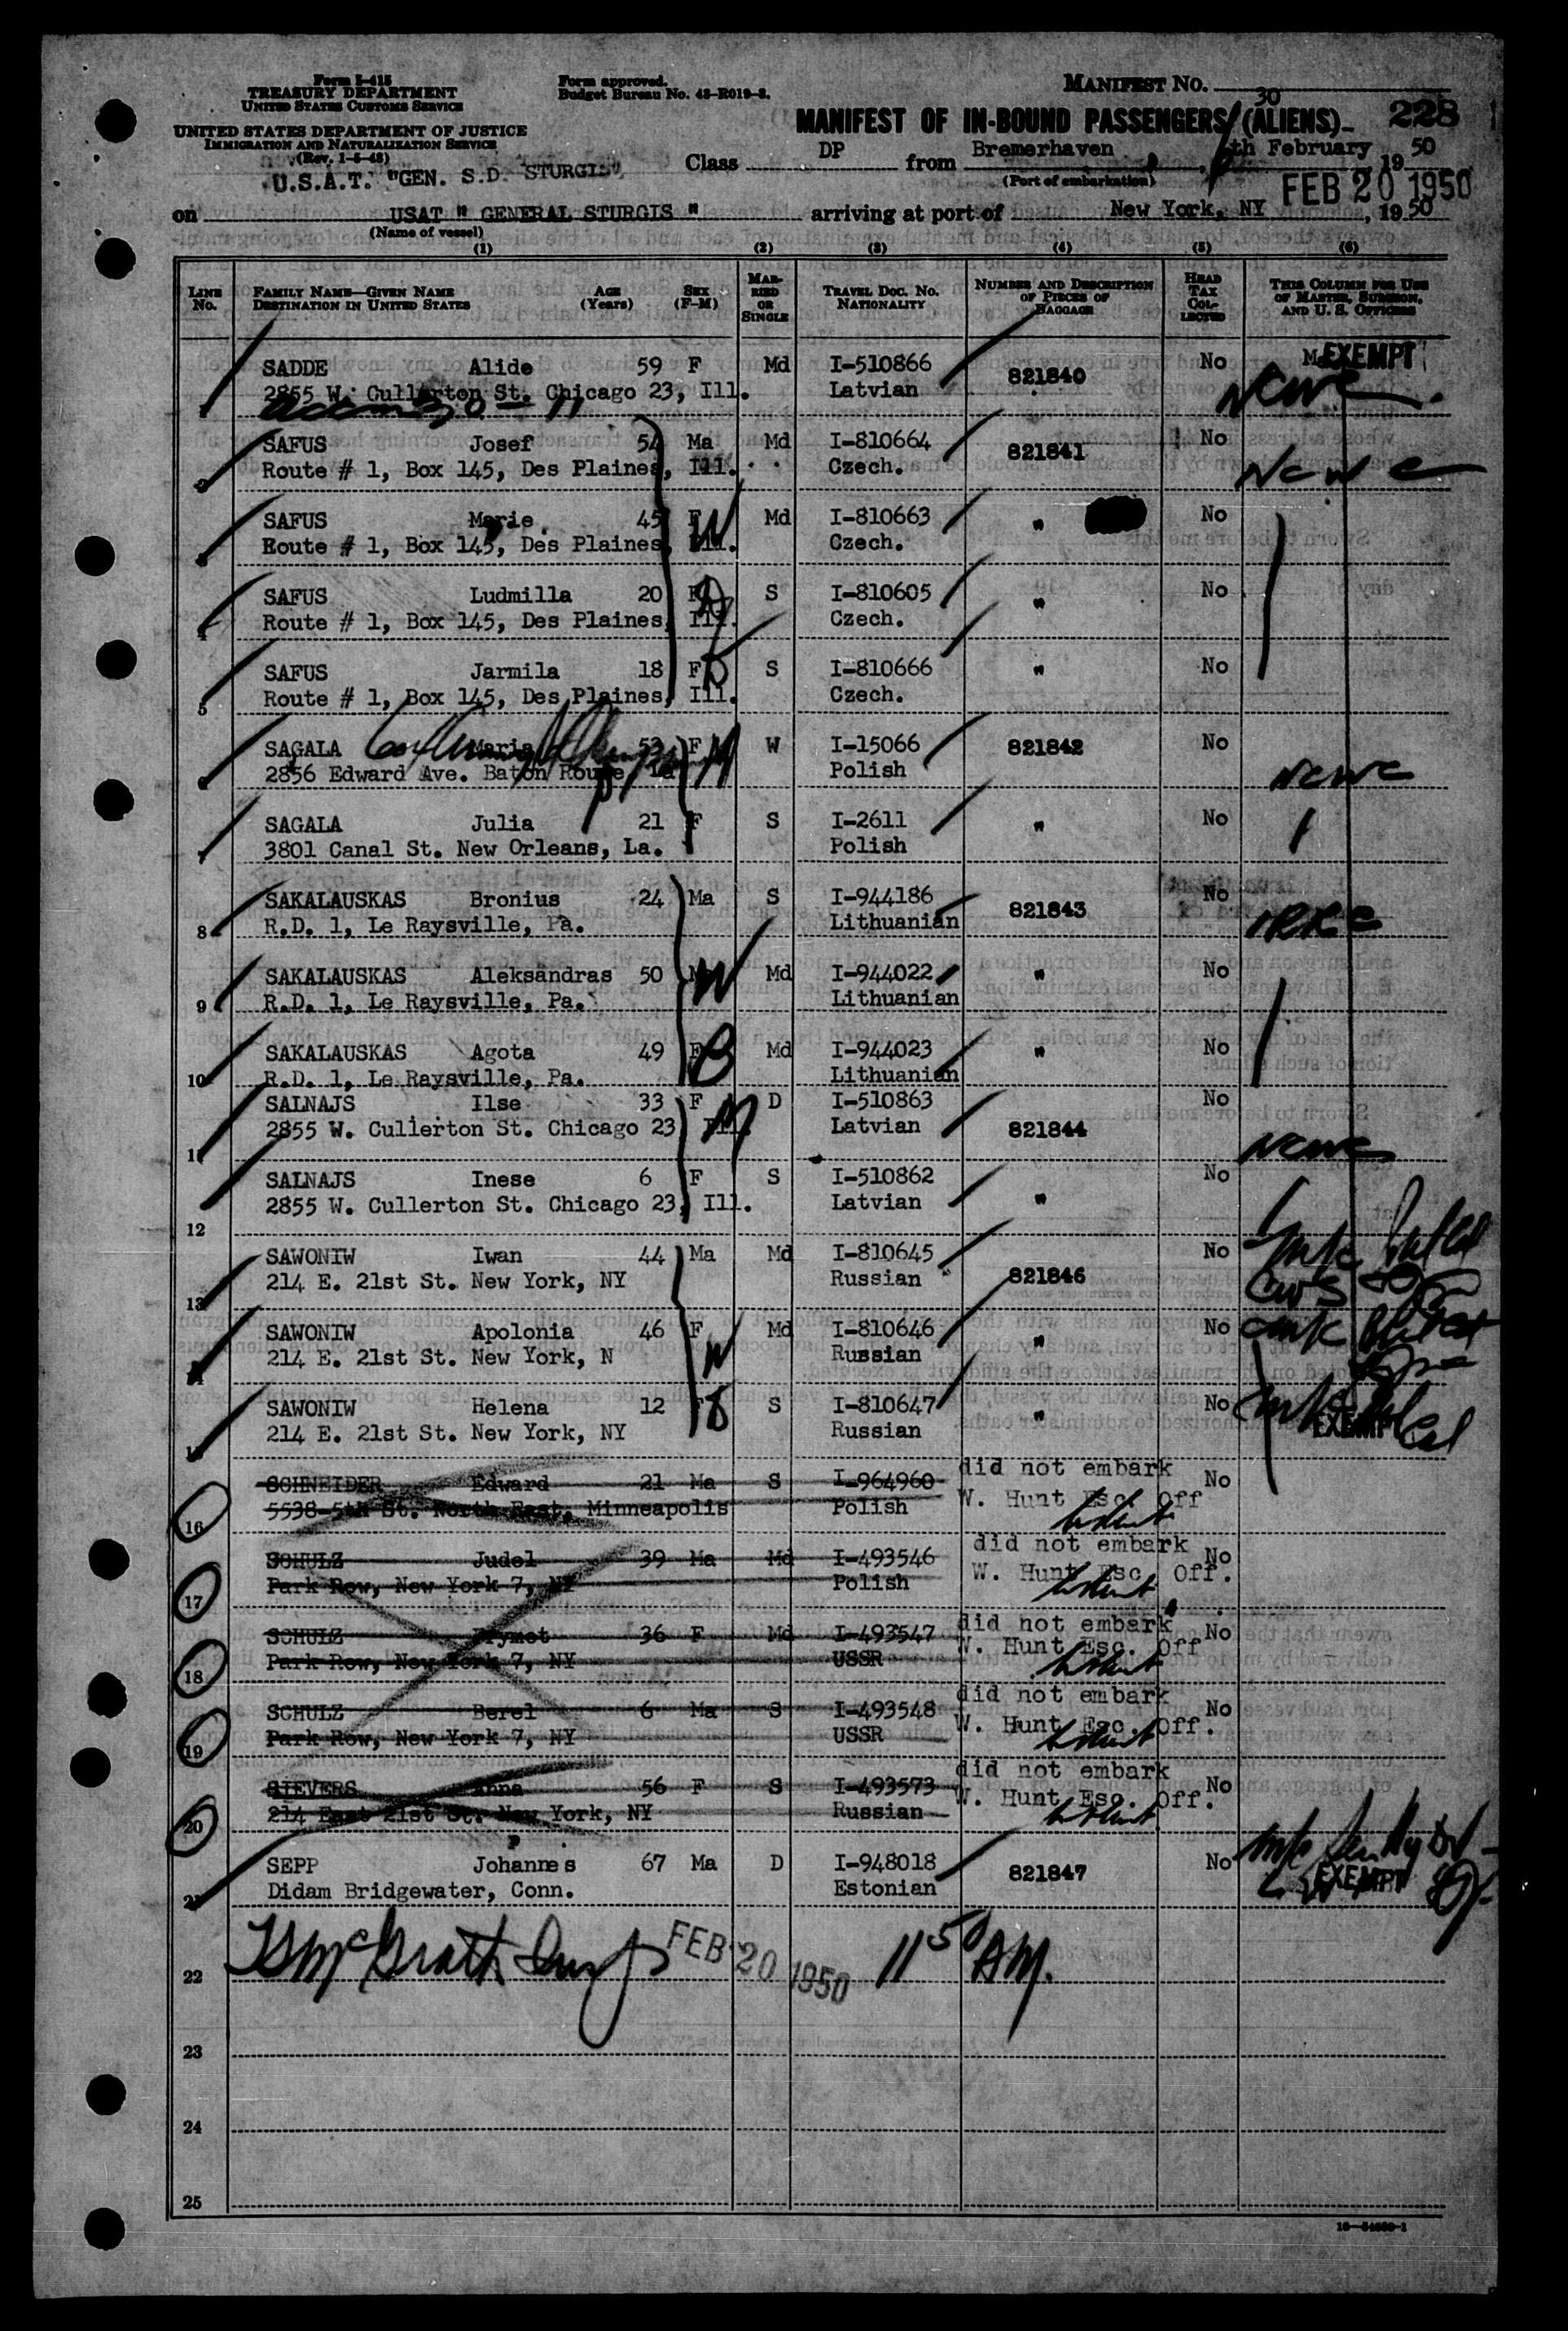 Form I-415
TREASURY DEPARTMENT
UNITED STATES CUSTOMS SERVICE
UNITED STATES DEPARTMENT OF JUSTICE
IMMIGRATION AND NATURALIZATION SERVICE
(Rev. 1-5-48)
Form approved.
Budget Bureau No. 43-R019-2.
MANIFEST NO.
30
MANIFEST OF IN-BOUND PASSENGERS (ALIENS) 228
Class DP from Bremerhaven, th February, 19 50
(Port of embarkation)
U.S.A.T. "GEN. S.D. STURGIS" FEB 20 1950
on USAT " GENERAL STURGIS " arriving at port of New York, NY, 19 50
(Name of vessel)
(1) (2) (3) (4) (5) (6)
LINE No. FAMILY NAME—GIVEN NAME DESTINATION IN UNITED STATES AGE (Years) SEX (F-M) MARRIED OR SINGLE TRAVEL DOC. NO. NATIONALITY NUMBER AND DESCRIPTION OF PIECES OF BAGGAGE HEAD TAX COLLECTED THIS COLUMN FOR USE OF MASTER, SURGEON, AND U. S. OFFICERS
SADDE Alide 59 F Md I-510866 821840 No EXEMPT
2855 W. Cullerton St. Chicago 23, Ill. Latvian NCWC
SAFUS Josef 54 Ma Md I-810664 821841 No
Route # 1, Box 145, Des Plaines, Ill. Czech. NCWC
SAFUS Marie 45 F Md I-810663 " No
Route # 1, Box 145, Des Plaines, Ill. Czech.
SAFUS Ludmilla 20 F S I-810605 " No
4 Route # 1, Box 145, Des Plaines, Ill. Czech.
SAFUS Jarmila 18 F S I-810666 " No
5 Route # 1, Box 145, Des Plaines, Ill. Czech.
SAGALA Maria 53 F W I-15066 821842 No
2856 Edward Ave. Baton Rouge, La Polish NCWC
SAGALA Julia 21 F S I-2611 " No
7 3801 Canal St. New Orleans, La. Polish
SAKALAUSKAS Bronius 24 Ma S I-944186 821843 No
8 R.D. 1, Le Raysville, Pa. Lithuanian
SAKALAUSKAS Aleksandras 50 Ma Md I-944022 " No
9 R.D. 1, Le Raysville, Pa. Lithuanian
SAKALAUSKAS Agota 49 F Md I-944023 " No
10 R.D. 1, Le Raysville, Pa. Lithuanian
SALNAJS Ilse 33 F D I-510863 821844 No
11 2855 W. Cullerton St. Chicago 23, Ill. Latvian NCWC
SALNAJS Inese 6 F S I-510862 " No
12 2855 W. Cullerton St. Chicago 23, Ill. Latvian
SAWONIW Iwan 44 Ma Md I-810645 821846 No
13 214 E. 21st St. New York, NY Russian CWS
SAWONIW Apolonia 46 F Md I-810646 " No
14 214 E. 21st St. New York, N Russian
SAWONIW Helena 12 F S I-810647 " No
214 E. 21st St. New York, NY Russian EXEMPT
SCHNEIDER Edward 21 Ma S I-964960 did not embark No
16 5538-5th St. North East, Minneapolis Polish W. Hunt Esc. Off
SCHULZ Judel 39 Ma Md I-493546 did not embark No
17 Park Row, New York 7, NY Polish W. Hunt Esc. Off.
SCHULZ Frymet 36 F Md I-493547 did not embark No
18 Park Row, New York 7, NY USSR W. Hunt Esc. Off
SCHULZ Berel 6 Ma S I-493548 did not embark No
19 Park Row, New York 7, NY USSR W. Hunt Esc. Off.
SIEVERS Anna 56 F S I-493573 did not embark No
20 214 East 21st St. New York, NY Russian W. Hunt Esc. Off.
SEPP Johannes 67 Ma D I-948018 821847 No
21 Didam Bridgewater, Conn. Estonian EXEMPT
McGrath FEB 20 1950 11 50 AM.
22
23
24
25